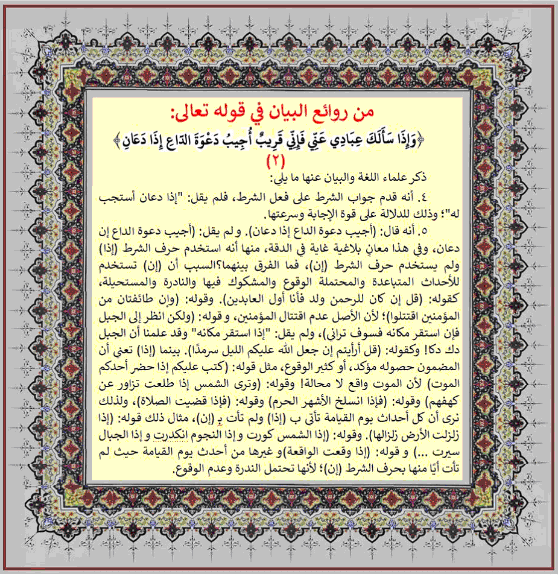 من روائع البيان في قوله تعالى:
﴿وَإِذَا سَأَلَكَ عِبَادِي عَنِّي فَإِنِّي قَرِيبٌ أُجِيبُ دَعْوَةَ الدَّاعِ إِذَا دَعَانِ﴾
(٢)
ذكر علماء اللغة والبيان عنها ما يلي:
٤. أنه قدم جواب الشرط على فعل الشرط، فلم يقل: "إذا دعان أستجب
له"؛ وذلك للدلالة على قوة الإجابة وسرعتها.
٥. أنه قال: (أجيب دعوة الداع إذا دعان). و لم يقل: (أجيب دعوة الداع إن
دعان، وفي هذا معانٍ بلاغية غاية في الدقة، منها أنه استخدم حرف الشرط (إذا)
ولم يستخدم حرف الشرط (إن)، فما الفرق بينهما؟السبب أن (إن) تستخدم
للأحداث المتباعدة والمحتملة الوقوع والمشكوك فيها والنادرة والمستحيلة،
كقوله: (قل إن كان للرحمن ولد فأنا أول العابدين). وقوله: (وإن طائفتان من
المؤمنين اقتتلوا)؛ لأن الأصل عدم اقتتال المؤمنين، و قوله: (ولكن انظر إلى الجبل
فإن استقر مكانه فسوف تراني)، ولم يقل: "إذا استقر مكانه" وقد علمنا أن الجبل
دك دكا! وكقوله: (قل أرأيتم إن جعل الله عليكم الليل سرمدًا). بينما (إذا) تعني أن
المضمون حصوله مؤكد، أو كثير الوقوع، مثل قوله: (كتب عليكم إذا حضر أحدكم
الموت) لأن الموت واقع لا محالة! وقوله: (وترى الشمس إذا طلعت تزاور عن
كهفهم) وقوله: (فإذا انسلخ الأشهر الحرم) وقوله: (فإذا قضيت الصلاة)، ولذلك
نرى أن كل أحداث يوم القيامة تأتي ب (إذا) ولم تأت بـ (إن)، مثال ذلك قوله: (إذا
زلزلت الأرض زلزالها). وقوله: (إذا الشمس كورت و إذا النجوم انكدرت و إذا الجبال
سيرت ...) و قوله: (إذا وقعت الواقعة)و غيرها من أحدث يوم القيامة حيث لم
تأت أيًا منها بحرف الشرط (إن)؛ لأنها تحتمل الندرة وعدم الوقوع.